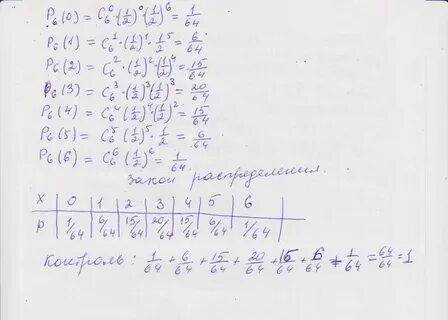 P₆(0) = C₆⁰·(1/2)⁰·(1/2)⁶ = 1/64
P₆(1) = C₆¹·(1/2)¹·1/2⁵ = 6/64
P₆(2) = C₆²·(1/2)²·(1/2)⁴ = 15/64
P₆(3) = C₆³·(1/2)³(1/2)³ = 20/64
P₆(4) = C₆⁴(1/2)⁴·(1/2)² = 15/64
P₆(5) = C₆⁵(1/2)⁵·1/2 = 6/64
P₆(6) = C₆⁶(1/2)⁶ = 1/64
Закон распределения.
X 0 1 2 3 4 5 6
P 1/64 6/64 15/64 20/64 15/64 6/64 1/64
Контроль: 1/64 + 6/64 + 15/64 + 20/64 + 15/64 + 6/64 + 1/64 = 64/64 = 1